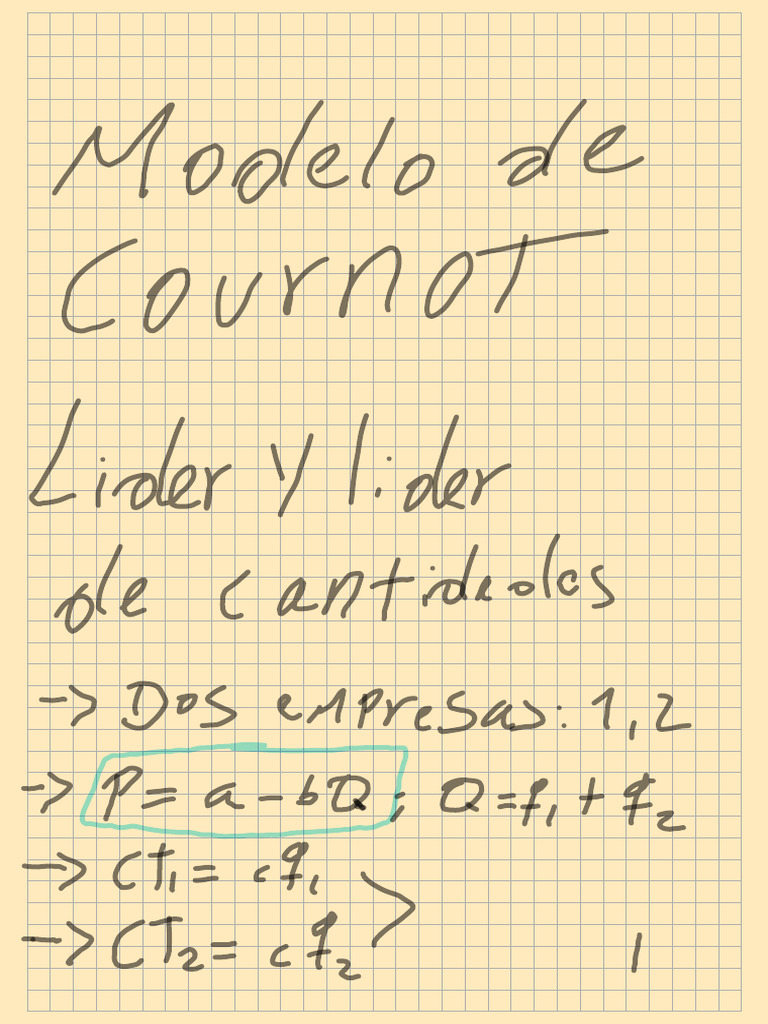 Modelo de
Cournot
Lider y lider
de cantidades
-> Dos empresas: 1,2
-> P = a - bQ ; Q = q₁ + q₂
-> CT₁ = cq₁
-> CT₂ = cq₂
1